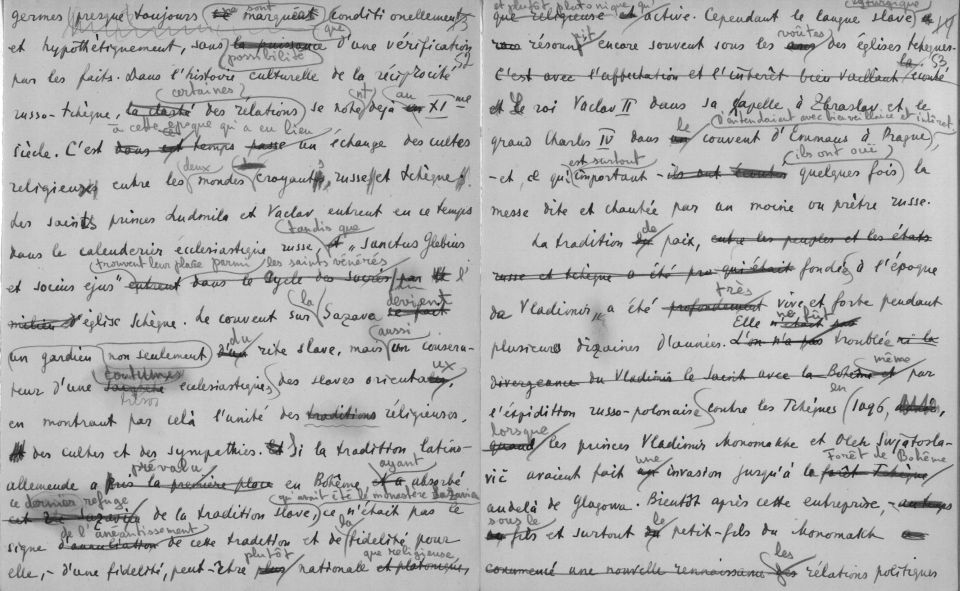 germes presque toujours marqués conditionellement
que
et hypothétiquement, sans la puissance d'une vérification
possibilité
par les faits. Dans l'histoire culturelle de la réciprocité
certaines au
russo-tchèque, la clarté des rélations se note déjà XI me
à cette époque qui a eu lieu
siècle. C'est dans temps passe un échange des cultes
deux
religieux entre les mondes croyants, russe et tchèque.
des saints princes Ludmila et Vaclav entrent en ce temps
tandis que
dans le calendrier ecclésiastique russe, "sanctus Glebius
trouvent leur place parmi les saints vénérés
et socius ejus" entrent dans le cycle des sacrés par l'
la devient
milieu d'église tchèque. Le couvent sur Sazava se fait
du aussi
un gardien non seulement d'un rite slave, mais un conserva-
coutumes ux
teur d'une ecclésiastique, des slaves orientaux,
trésor
en montrant par celà l'unité des traditions réligieuses,
des cultes et des sympathies. Et Si la tradition latino-
prévalu ayant
allemande a pris la première place en Bohême, et a absorbé
ce dernier refuge qui avait été le monastère Sazavia
de la tradition slave, ce n'était pas le
de l'anéantissement la
signe d'annulation de cette tradition et de fidelité pour
plutôt que religieuse
elle, - d'une fidelité, peut-être plus nationale et platonique,
et plutôt platonique qu'
liturgique
que religieuse et active. Cependant la langue slave a
it voûtes
résonné encore souvent sous les des églises tchèques.
C'est avec l'affectation et l'interêt bien vaillant
et Le roi Vaclav II dans sa Capelle à Zbraslav et le
le l'entendaient avec bienveillance et intérêt
grand Charles IV dans un couvent d'Emmaus à Prague,
est surtout ils ont ouï
- et, ce qui important - ils ont écouté quelques fois la
messe dite et chantée par un moine ou prêtre russe.
de
La tradition paix, entre les peuples et les états
russe et tchèque a été qui était fondée à l'époque
très
de Vladimir, a été profondement vive et forte pendant
Elle ne fût
plusieurs dizaines d'années. L'on n'a pas troublée ni la
même
divergeance du Vladimir le Saint avec la Bohême et par
en
l'éxpidittion russo-polonaise contre les Tchèques (1096,
lorsque
quand les princes Vladimir Monomakhe et Oleh Swjatosla-
une Forêt de Bohême
vič avaient fait un invasion jusqu'à la forêt Tchèque
audelà de Glagowa. Bientôt après cette entreprise, - au temps
sous le le
du fils et surtout du petit-fils du Monomakh
les
commencé une nouvelle rennaissance des rélations politiques